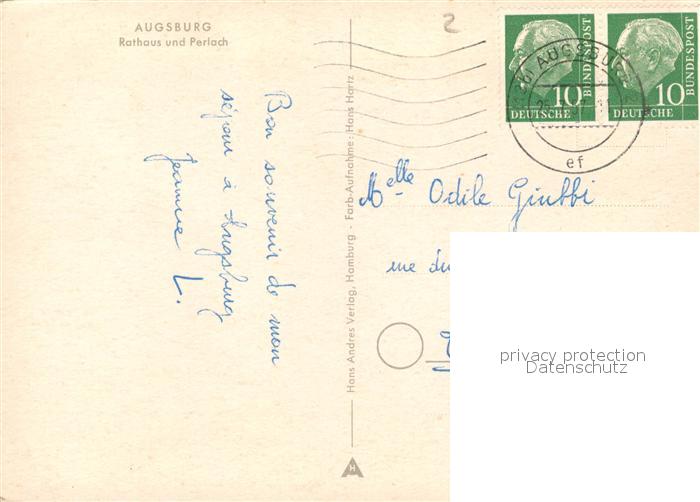 AUGSBURG
Rathaus und Perlach
2
Bon souvenir de mon
séjour à Augsburg
Jeanne L.
Hans Andres Verlag, Hamburg - Farb-Aufnahme: Hans Hartz
H
10
DEUTSCHE
BUNDESPOST
10
DEUTSCHE
BUNDESPOST
AUGSBURG
ef
Melle Odile Giubbi
rue du
privacy protection
Datenschutz